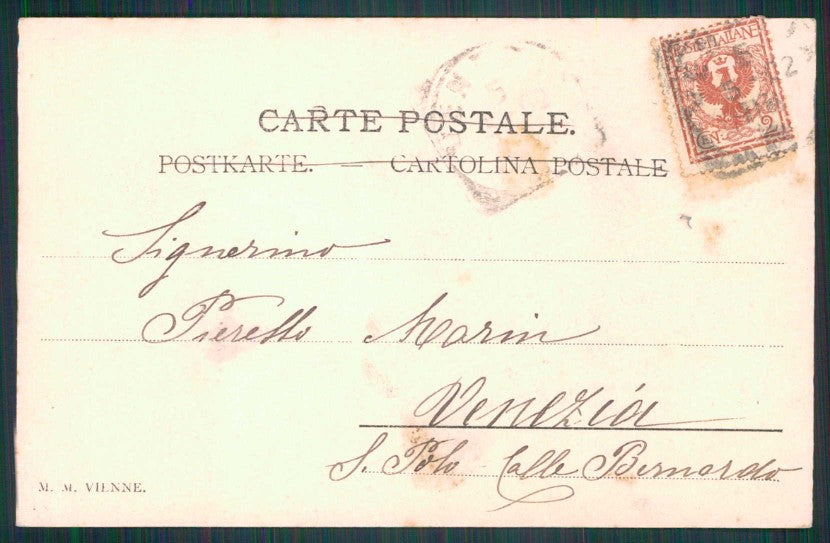 CARTE POSTALE.
POSTKARTE. — CARTOLINA POSTALE
POSTE ITALIANE
CENT. 2
Signorino
Pieretto Marin
Venezia
S. Polo Calle Bernardo
M. M. VIENNE.